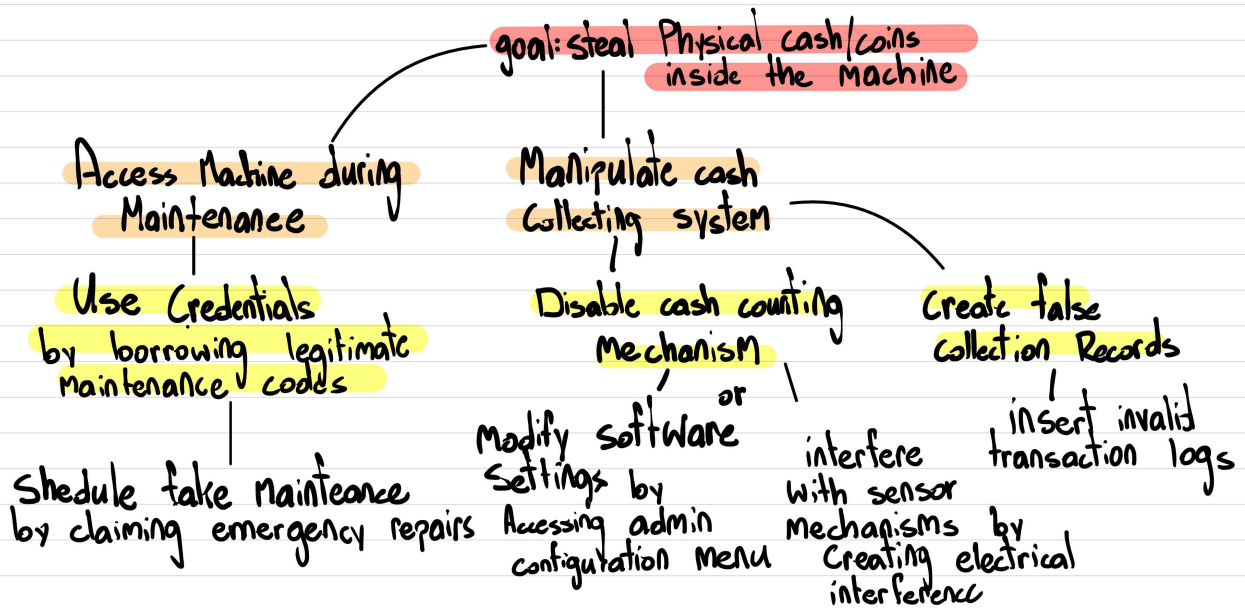 goal: steal Physical cash/coins
inside the Machine
Access Machine during
Maintenance
Manipulate cash
Collecting system
Use Credentials
by borrowing legitimate
maintenance codes
Disable cash counting
Mechanism
Create false
collection Records
Shedule fake Mainteance
by claiming emergency repairs
or
Modify software
Settings by
Accessing admin
configutation menu
interfere
with sensor
mechanisms by
Creating electrical
interference
insert invalid
transaction logs